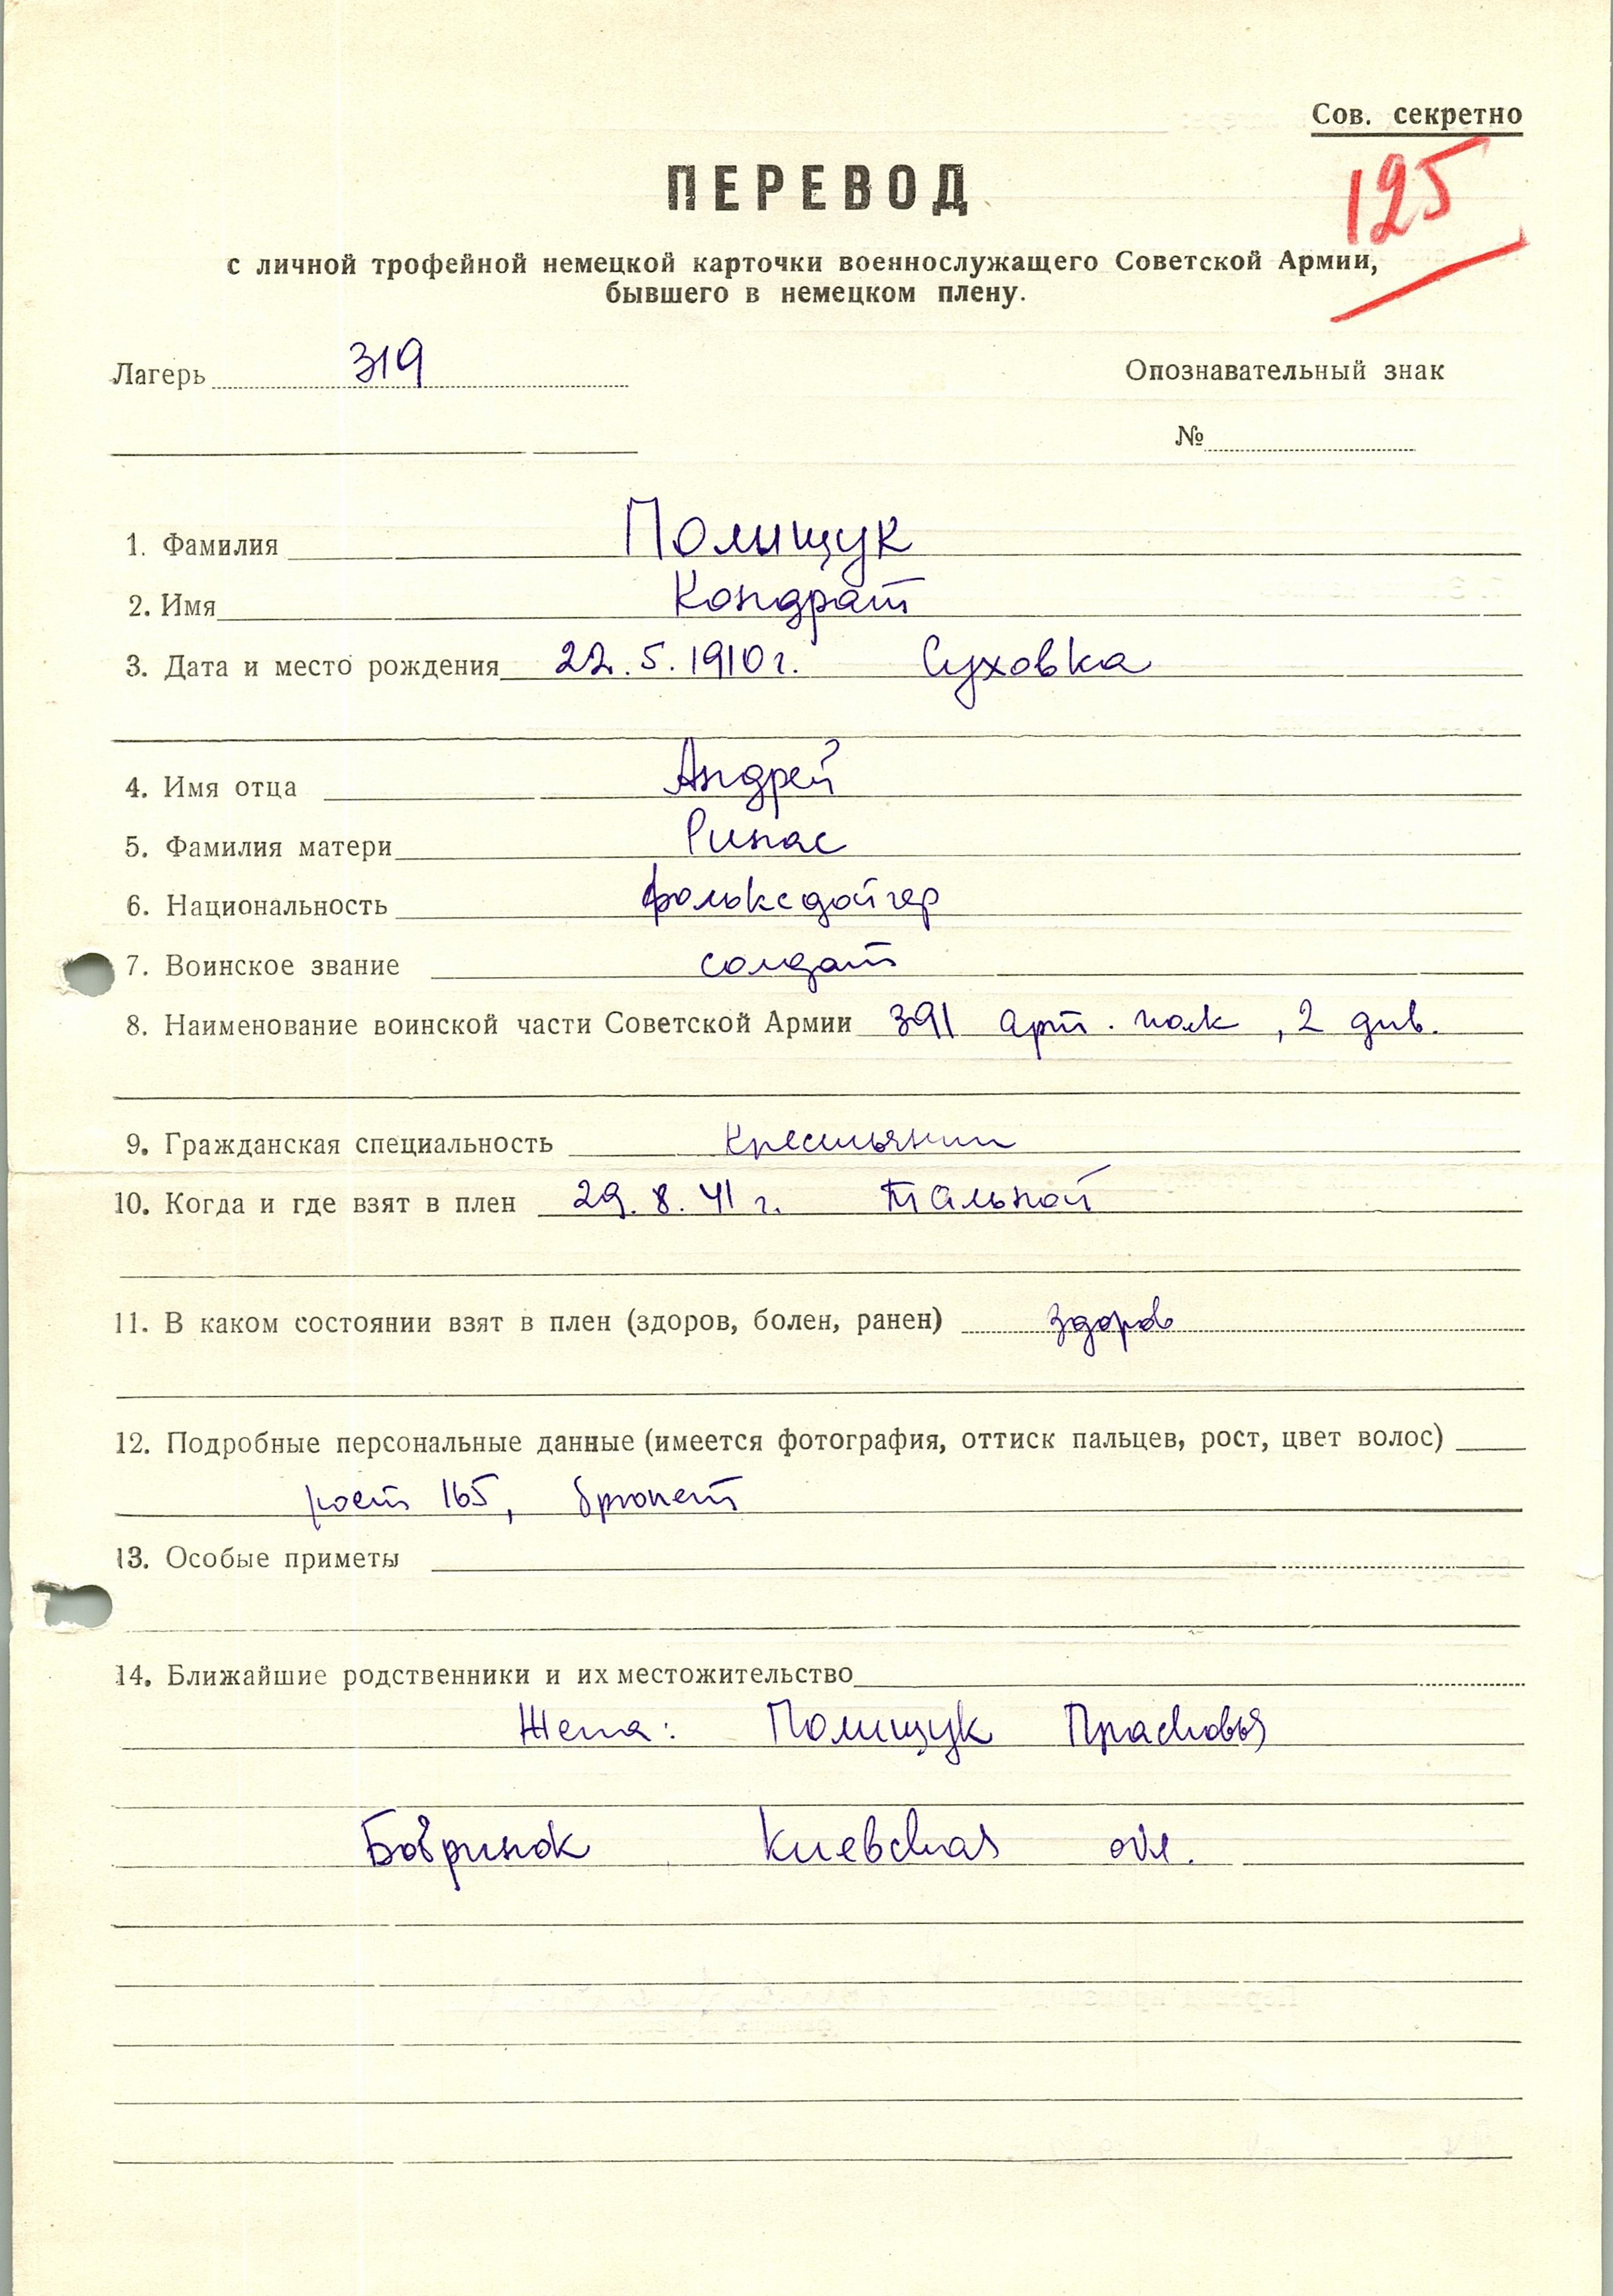 Сов. секретно
125
ПЕРЕВОД
с личной трофейной немецкой карточки военнослужащего Советской Армии,
бывшего в немецком плену.
Лагерь 319 Опознавательный знак
№
1. Фамилия Полищук
2. Имя Кондрат
3. Дата и место рождения 22.5.1910 г. Суховка
4. Имя отца Андрей
5. Фамилия матери Рипас
6. Национальность фольксдойчер
7. Воинское звание солдат
8. Наименование воинской части Советской Армии 391 арт. полк, 2 див.
9. Гражданская специальность Крестьянин
10. Когда и где взят в плен 29.8.41 г. Тальной
11. В каком состоянии взят в плен (здоров, болен, ранен) здоров
12. Подробные персональные данные (имеется фотография, оттиск пальцев, рост, цвет волос)
рост 165, брюнет
13. Особые приметы
14. Ближайшие родственники и их местожительство
Жена: Полищук Прасковья
Бобринок Киевская обл.